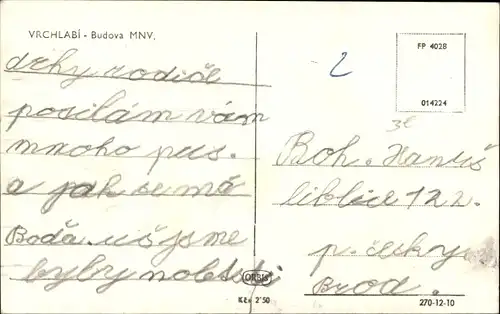 VRCHLABÍ - Budova MNV.
drhy rodiče
posilám vám
mnoho pus.
a jak se má
Boďa. už jsme
byly
ORBIS
Kčs 2'50
2
FP 4028
014224
Boh. Hanuš
liblice 122.
p. česky
Brod.
270-12-10